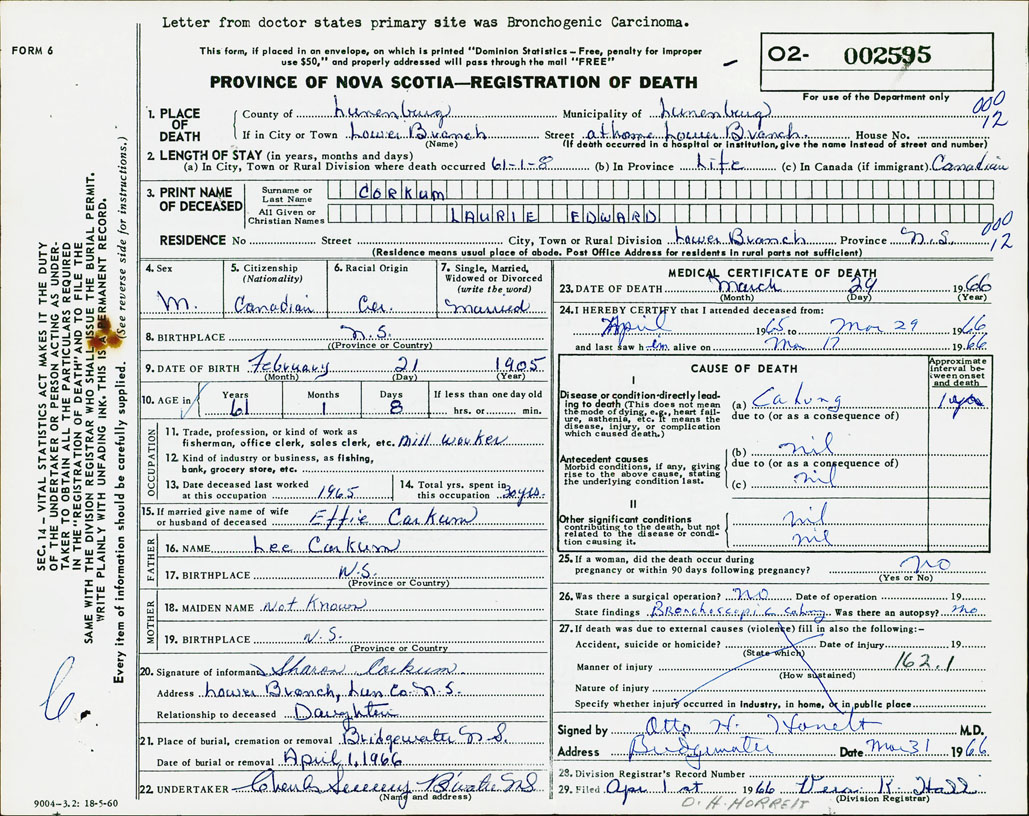 Letter from doctor states primary site was Bronchogenic Carcinoma.
FORM 6
This form, if placed in an envelope, on which is printed "Dominion Statistics – Free, penalty for improper
use $50," and properly addressed will pass through the mail "FREE"
O2- 002595
For use of the Department only
PROVINCE OF NOVA SCOTIA—REGISTRATION OF DEATH
000
12
1. PLACE OF DEATH
County of Lunenburg Municipality of Lunenburg
If in City or Town Lower Branch Street at home Lower Branch House No.
(Name) (If death occurred in a hospital or institution, give the name instead of street and number)
2. LENGTH OF STAY (in years, months and days)
(a) In City, Town or Rural Division where death occurred 61-1-8 (b) In Province Life (c) In Canada (if immigrant) Canadian
3. PRINT NAME OF DECEASED
Surname or Last Name CORKUM
All Given or Christian Names LAURIE EDWARD
000
12
RESIDENCE No Street City, Town or Rural Division Lower Branch Province N.S.
(Residence means usual place of abode. Post Office Address for residents in rural parts not sufficient)
4. Sex
M.
5. Citizenship
(Nationality)
Canadian
6. Racial Origin
Ger.
7. Single, Married,
Widowed or Divorced
(write the word)
married
8. BIRTHPLACE N.S.
(Province or Country)
9. DATE OF BIRTH February 21 1905
(Month) (Day) (Year)
10. AGE in
Years Months Days If less than one day old
61 1 8 hrs. or min.
OCCUPATION
11. Trade, profession, or kind of work as
fisherman, office clerk, sales clerk, etc. Mill worker
12. Kind of industry or business, as fishing,
bank, grocery store, etc.
13. Date deceased last worked
at this occupation 1965
14. Total yrs. spent in
this occupation 30 yrs.
15. If married give name of wife
or husband of deceased Effie Corkum
FATHER
16. NAME Lee Corkum
17. BIRTHPLACE N.S.
(Province or Country)
MOTHER
18. MAIDEN NAME Not Known
19. BIRTHPLACE N.S.
(Province or Country)
20. Signature of informant Sharon Corkum
Address Lower Branch, Lun. Co. N.S.
Relationship to deceased Daughter
21. Place of burial, cremation or removal Bridgewater N.S.
Date of burial or removal April 1, 1966
22. UNDERTAKER B'water NS
(Name and address)
MEDICAL CERTIFICATE OF DEATH
23. DATE OF DEATH March 29 1966
(Month) (Day) (Year)
24. I HEREBY CERTIFY that I attended deceased from:
April 1965 to Mar 29 1966
and last saw him alive on Mar 17 1966
CAUSE OF DEATH
Approximate interval between onset and death
I
Disease or condition directly leading to death (This does not mean the mode of dying, e.g., heart failure, asthenia, etc. It means the disease, injury, or complication which caused death.)
(a) Ca Lung 1 yr
due to (or as a consequence of)
Antecedent causes
Morbid conditions, if any, giving rise to the above cause, stating the underlying condition last.
(b) nil
due to (or as a consequence of)
(c) nil
II
Other significant conditions
contributing to the death, but not related to the disease or condition causing it.
nil
nil
25. If a woman, did the death occur during
pregnancy or within 90 days following pregnancy? No
(Yes or No)
26. Was there a surgical operation? No Date of operation 19
State findings Bronchoscopic ca lung Was there an autopsy? no
27. If death was due to external causes (violence) fill in also the following:–
Accident, suicide or homicide? Date of injury 19
(State which)
Manner of injury 162.1
(How sustained)
Nature of injury
Specify whether injury occurred in industry, in home, or in public place
Signed by Otto H. Horrelt M.D.
Address Bridgewater Date Mar 31 1966
28. Division Registrar's Record Number
29. Filed Apr 1st 1966 Vera K. Hall
(Division Registrar)
O. H. HORRELT
9004–3.2: 18-5-60
SEC. 14 – VITAL STATISTICS ACT MAKES IT THE DUTY
OF THE UNDERTAKER OR PERSON ACTING AS UNDER-
TAKER TO OBTAIN ALL THE PARTICULARS REQUIRED
IN THE "REGISTRATION OF DEATH" AND TO FILE THE
SAME WITH THE DIVISION REGISTRAR WHO SHALL ISSUE THE BURIAL PERMIT.
WRITE PLAINLY WITH UNFADING INK. THIS IS A PERMANENT RECORD.
Every item of information should be carefully supplied. (See reverse side for instructions.)